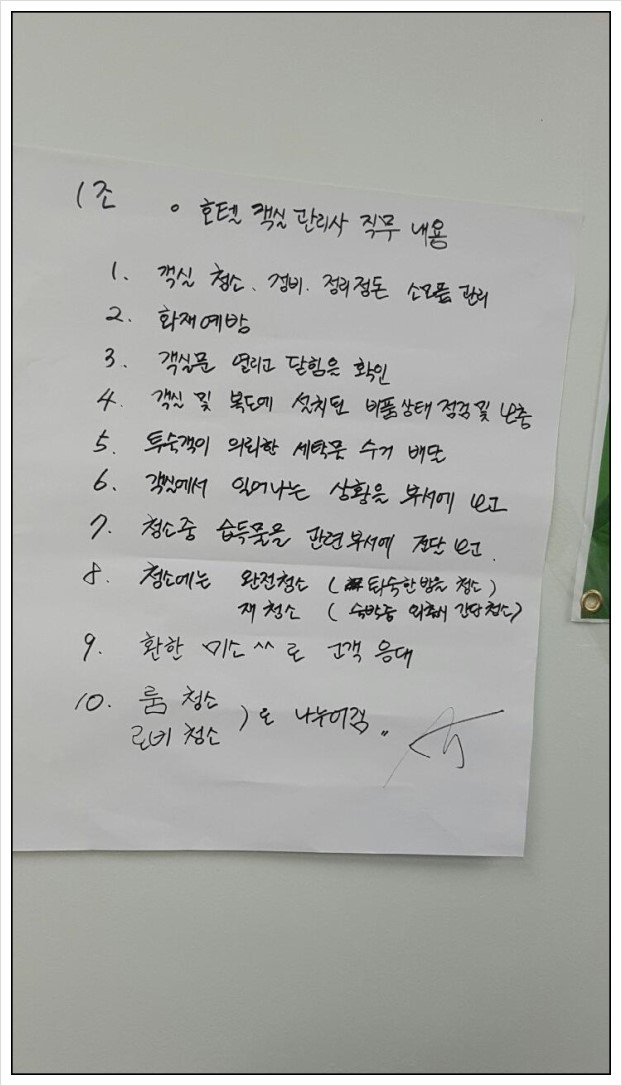 1조 ○ 호텔 객실 관리사 직무 내용
1. 객실 청소. 정비. 정리정돈 소모품 관리
2. 화재예방
3. 객실문 열리고 닫힘을 확인
4. 객실 및 복도에 설치된 비품상태 점검 및 보충
5. 투숙객이 의뢰한 세탁물 수거 배달
6. 객실에서 일어나는 상황을 부서에 보고
7. 청소중 습득물을 관련부서에 전달 보고.
8. 청소에는 완전청소 ( 타숙한 방을 청소 )
재청소 ( 숙박중 외출해 간단청소)
9. 환한 미소 ^^ 로 고객 응대
10. 룸 청소
로비 청소 ) 로 나누어짐 〃